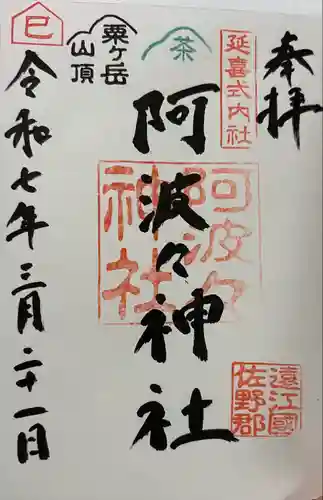 奉拝
延喜式内社
遠江國
佐野郡
茶
阿波々神社
阿波々
神社
粟ヶ岳
山頂
巳
令和七年三月二十一日